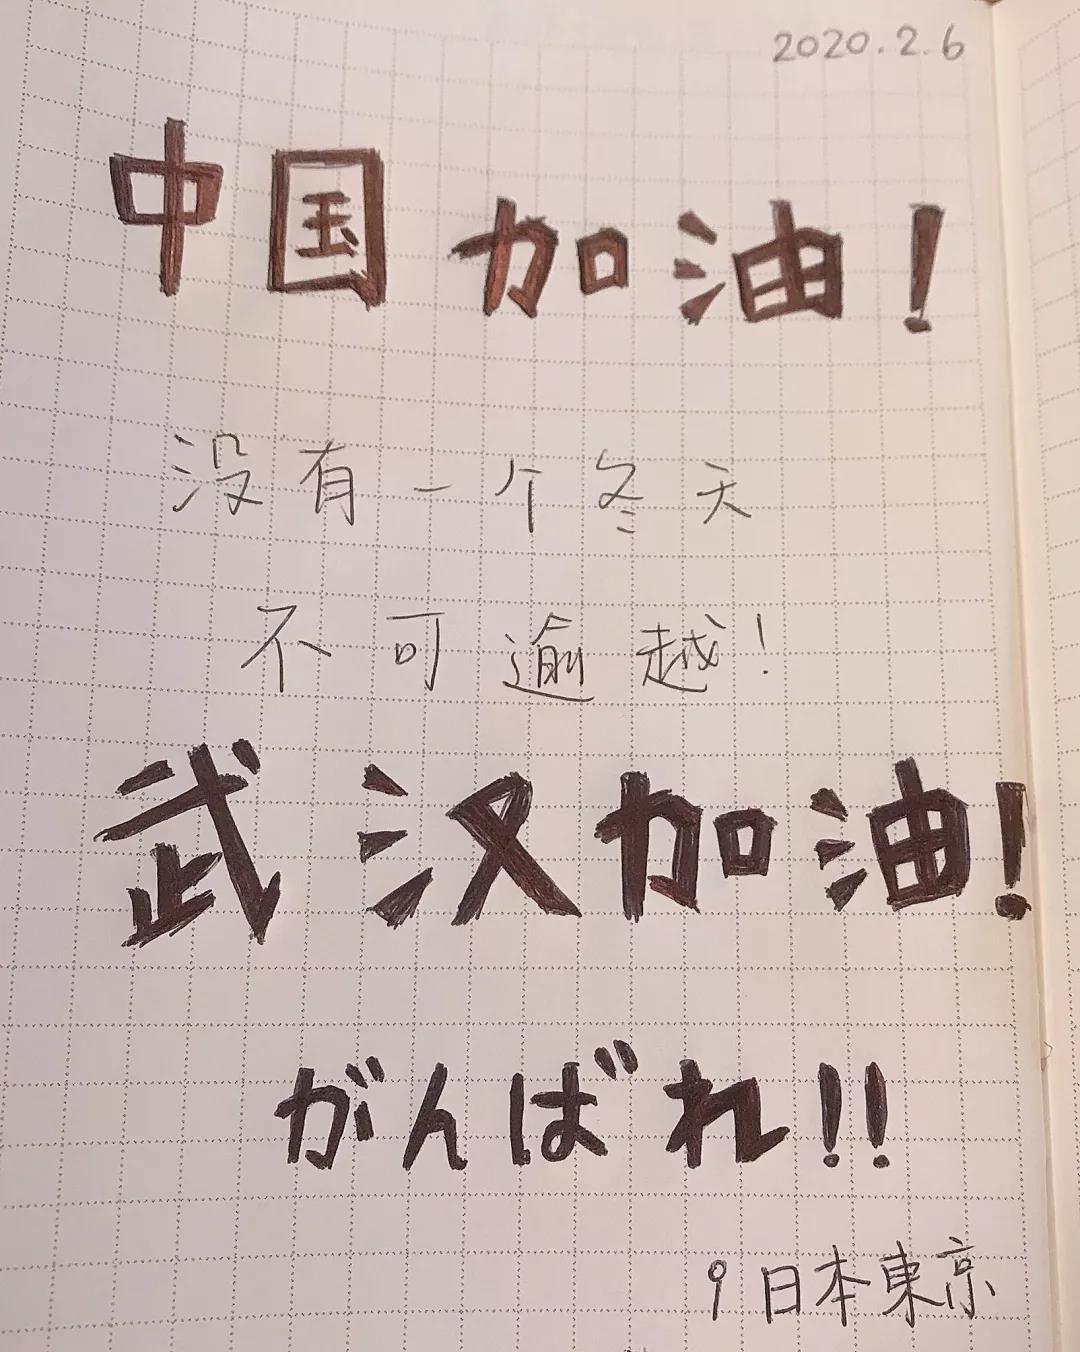 2020.2.6
中国加油!
没有一个冬天
不可逾越!
武汉加油!
がんばれ!!
日本東京